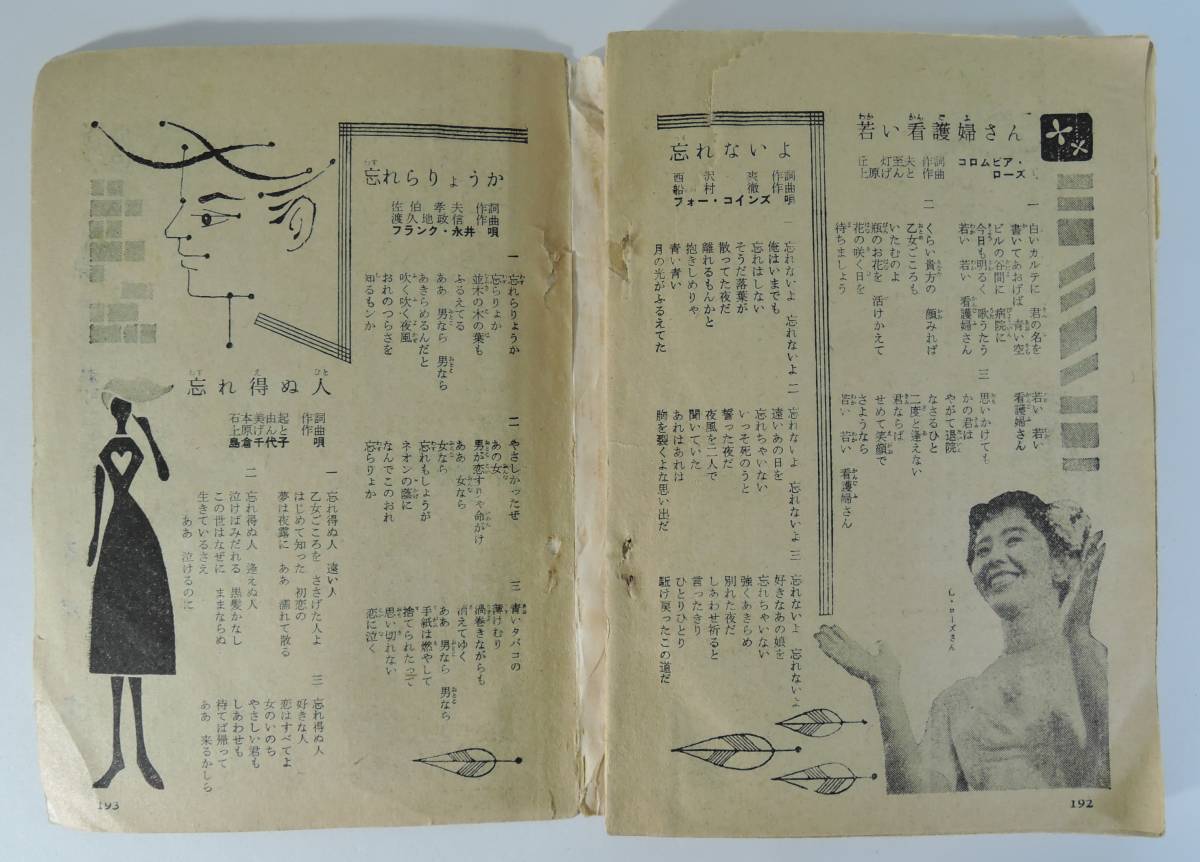 若い看護婦さん
丘灯至夫 作詞
上原げんと 作曲
コロムビア・ローズ
一
白いカルテに 君の名を
書いてあおげば 青い空
ビルの谷間に 病院に
今日も明るく 歌うたう
若い 若い 看護婦さん
二
くらい貴方の 顔みれば
乙女ごころも
いたむのよ
瓶のお花を 活けかえて
花の咲く日を
待ちましょう
若い 若い
看護婦さん
三
思いかけても
かの君は
やがて退院
なさるひと
二度と逢えない
君ならば
せめて笑顔で
さようなら
若い 若い 看護婦さん
C・ローズさん
忘れないよ
西沢爽 作詞
船村徹 作曲
フォー・コインズ 唄
一
忘れないよ 忘れないよ
俺はいまでも
忘れはしない
そうだ落葉が
散ってた夜だ
離れるもんかと
抱きしめりゃ
青い青い
月の光がふるえてた
二
忘れないよ 忘れないよ
遠いあの日を
忘れちゃいない
いっそ死のうと
誓った夜だ
夜風を二人で
聞いていた
あれはあれは
胸を裂くよな思い出だ
三
忘れないよ 忘れないよ
好きなあの娘を
忘れちゃいない
強くあきらめ
別れた夜だ
しあわせ祈ると
言ったきり
ひとりひとり
駈け戻ったこの道だ
192
忘れらりょうか
佐伯孝夫 作詞
渡久地政信 作曲
フランク・永井 唄
一
忘れらりょうか
忘らりょか
並木の木の葉も
ふるえてる
ああ 男なら 男なら
あきらめるんだと
吹く吹く夜風
おれのつらさを
知るもンか
二
やさしかったぜ
あの女
男が恋すりゃ命がけ
ああ 女なら
女なら
忘れもしようが
ネオンの蔭に
なんでこのおれ
忘らりょか
三
青いタバコの
薄けむり
渦巻きながらも
消えてゆく
ああ 男なら 男なら
手紙は燃やして
捨てられたって
思い切れない
恋に泣く
忘れ得ぬ人
石本美由起 作詞
上原げんと 作曲
島倉千代子 唄
一
忘れ得ぬ人 遠い人
乙女ごころを ささげた人よ
はじめて知った 初恋の
夢は夜露に ああ 濡れて散る
二
忘れ得ぬ人 逢えぬ人
泣けばみだれる 黒髪かなし
この世はなぜに ままならぬ
生きているさえ
ああ 泣けるのに
三
忘れ得ぬ人
好きな人
恋はすべてよ
女のいのち
やさしい君も
しあわせも
待てば帰って
ああ 来るかしら
193